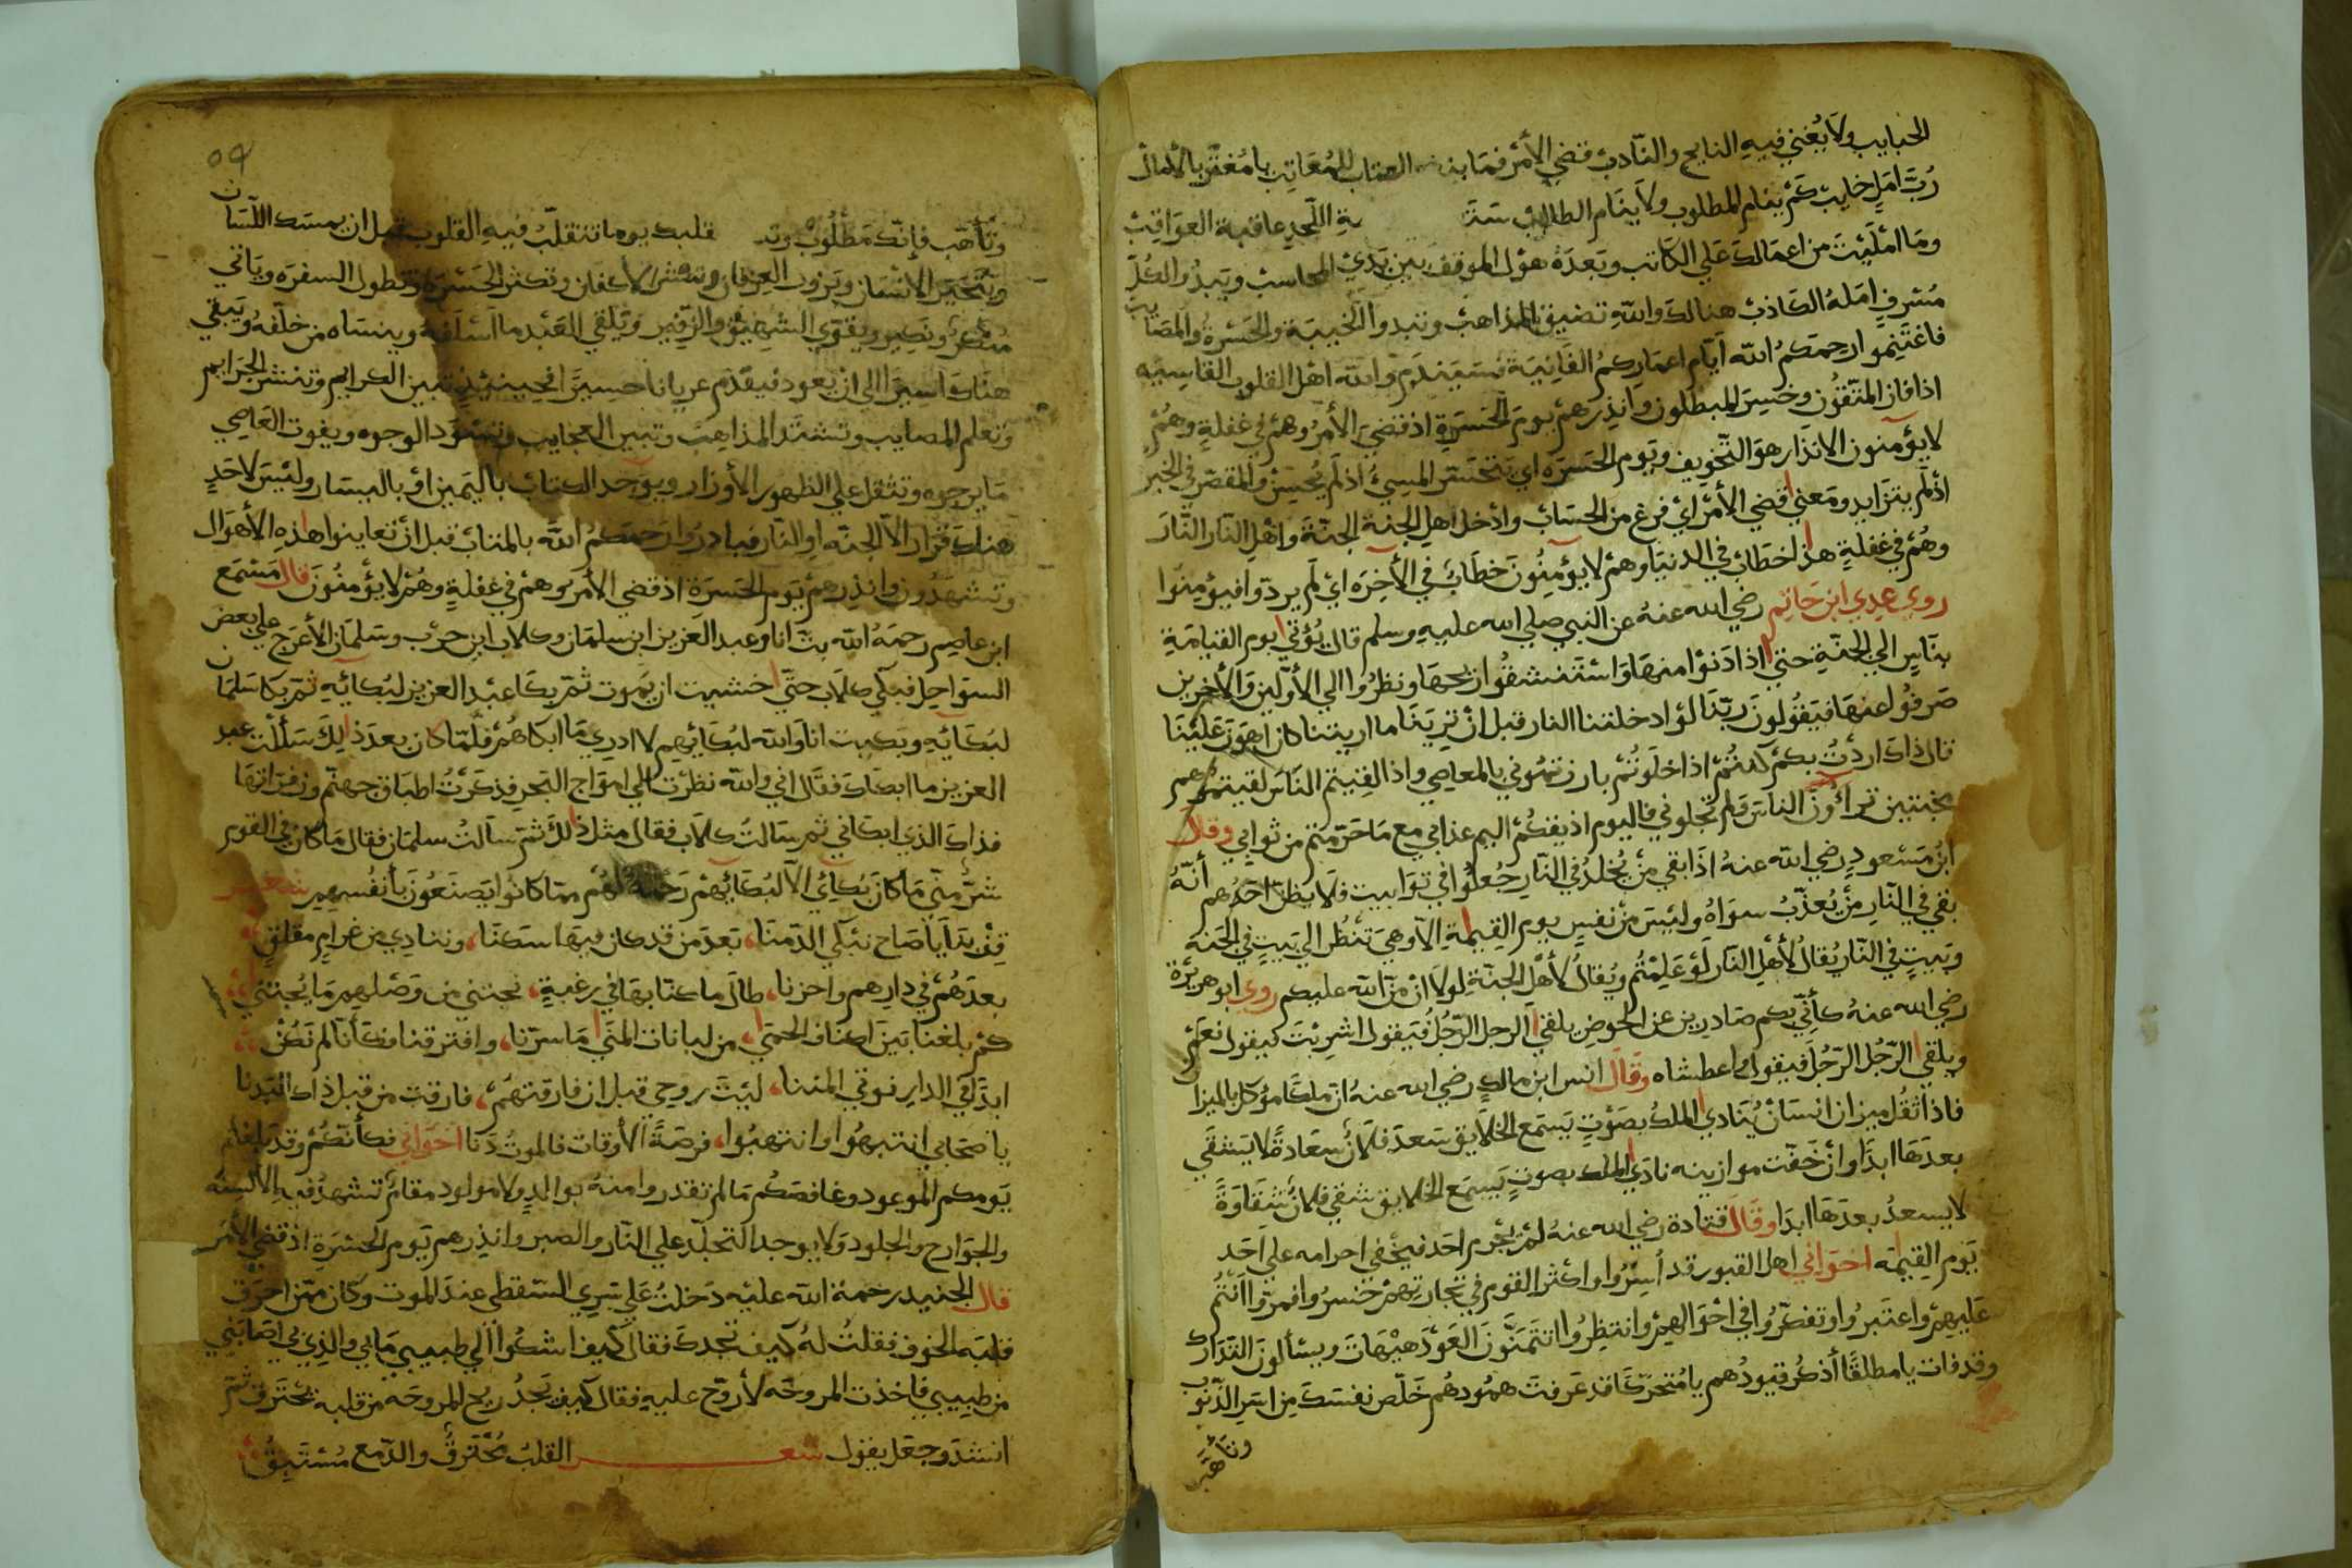 الحبايب ولا يغني فيه النايح والنادب قضي الأمر فما العتاب للمعاتب يا مغتر بالأمال
رب امل خايب كم ينام المطلوب ولا ينام الطالب اللحد عاقبة العواقب
وما امليت من اعمالك علي الكاتب وبعده هول الموقف بين يدي المحاسب ويبدوا لكل
مسرف امله الكاذب هنالك والله تضيق المذاهب وتبدوا الخيبة والحسرة والمصايب
فاغتنموا رحمكم الله أيام اعماركم الفانية فسيندم والله اهل القلوب القاسيه
اذا فاز المتقون وخسر المبطلون وانذرهم يوم الحسرة اذ قضي الأمر وهم في غفلة وهم
لا يؤمنون الانذار هو التخويف ويوم الحسره اي يتحسر المسيئ اذ لم يحسن والمقصر في الخير
اذ لم يتزايد ومعني قضي الأمر اي فرغ من الحساب وادخل اهل الجنة الجنة واهل النار النار
وهم في غفلة هذا خطاب في الدنيا وهم لا يؤمنون خطاب في الأخره اي لم يردوا فيؤمنوا
روي عدي ابن حاتم رضي الله عنه عن النبي صلي الله عليه وسلم قال يؤتي يوم القيامة
بناس الي الجنة حتي اذا دنوا منها واستنشقوا ريحها ونظروا الي الأولين والأخرين
صرفوا عنها فيقولون ربنا لو ادخلتنا النار قبل ان ترينا ما اريتنا كان اهون علينا
قال ذاك اردت بكم كنتم اذا خلوتم بارزتموني بالمعاصي واذا لقيتم الناس لقيتموهم
مخبتين تراؤن الناس ولم تجلوني فاليوم اذيقكم اليم عذابي مع ما حرمتم من ثوابي وقال
ابن مسعود رضي الله عنه اذا بقي من يخلد في النار جعلوا في توابيت فلا يظن احدهم أنه
بقي في النار من يعذب سواه وليس من نفس يوم القيمة الا وهي تنظر الي بيت في الجنه
وبيت في النار يقال لأهل النار لو علمتم ويقال لأهل الجنة لولا ان من الله عليكم روي ابو هريرة
رضي الله عنه كأني بكم صادرين عن الحوض يلقي الرجل الرجل فيقول اشربت فيقول نعم
ويلقي الرجل الرجل فيقول واعطشاه وقال انس ابن مالك رضي الله عنه ان ملكا موكل بالميزان
فاذا ثقل ميزان انسان ينادي الملك بصوت يسمع الخلايق سعد فلان سعادة لا يشقي
بعدها ابدا وان خفت موازينه نادي الملك بصوت يسمع الخلايق شقي فلان شقاوة
لا يسعد بعدها ابدا وقال قتادة رضي الله عنه لم يجرم احد فيخفي اجرامه علي احد
يوم القيمه اخواني اهل القبور قد أسروا واكثر القوم في تجارتهم خسروا فمروا انتم
عليهم واعتبروا وتفكروا في احوالهم وانتظروا تتمنون العود هيهات ويسألون التدارك
وقد فات يا مطلقا أذكر قيودهم يا متحركا قد عرفت همودهم خلص نفسك من اسر الذنوب
وتأهب
٥٩
وتأهب فإنك مطلوب قلبك يوما تتقلب فيه القلوب قبل ان يمسك اللسان
ويتحير الانسان ويزول العرفان وتنشر الأكفان وتكثر الحسرة وتطول السفره ويأتي
منكر ونكير ويقوي الشهيق والزفير ويلقي العبد ما اسلفه وينساه من خلفه ويبقي
هناك اسيرا الي ان يعود فيقدم عريانا حسيرا فحينئذ تبين الكرايم وتنشر الجرايم
وتعلم المصايب وتشتد المذاهب وتبين العجايب وتسود الوجوه ويفوت العاصي
ما يرجوه وتثقل علي الظهور الأوزار ويوخد الكتاب باليمين او باليسار وليس لاحد
هناك قرار الا الجنه او النار فبادروا رحمكم الله بالمتاب قبل أن تعاينوا هذه الأهوال
وتشهدون وانذرهم يوم الحسرة اذ قضي الأمر وهم في غفلة وهم لا يؤمنون قال مسمع
ابن عاصم رحمه الله بت انا وعبد العزيز ابن سلمان وكلاب ابن حرب وسلمان الأعرج علي بعض
السواحل فبكي كلاب حتي خشيت ان يموت ثم بكا عبد العزيز لبكائه ثم بكا سلمان
لبكائه وبكيت انا والله لبكائهم لا ادري ما ابكاهم فلما كان بعد ذلك سألت عبد
العزيز ما ابكاك فقال اني والله نظرت الي امواج البحر فذكرت اطباق جهنم وزفراتها
فذاك الذي ابكاني ثم سالت كلاب فقال مثل ذلك ثم سالت سلمان فقال ما كان في القوم
شر مني ما كان بكائي الا لبكائهم رحمة لهم مما كانوا يصنعون بأنفسهم شعر
قف بنا يا صاح نبكي الدمنا، بعد من قد كان فيها سكنا، وننادي من غرام مقلق
بعدهم في دارهم واحزنا، طال ما كنا بها في رغبة، نجتني من وصلهم ما يجتني
كم بلغنا بين اكناف الحمي، من لبانات المني ما سرنا، وافترقنا فكأنا لم نكن
ابدا في الدار نوقي المننا، ليت روحي قبل ان فارقتهم، فارقت من قبل ذاك البدنا
يا صحابي انتبهوا وانتهبوا، فرصة الأوقات فالموت دنا اخواني فكأنكم وقد بلغتم
يومكم الموعود وغافصكم ما لم تقدروا منه بوالد ولا مولود مقام تشهد فيه الألسنه
والجوارح والجلود ولا يوجد التجلد علي النار والصبر وانذرهم يوم الحسرة اذ قضي الأمر
قال الجنيد رحمة الله عليه دخلت علي سري السقطي عند الموت وكان ممن احرق
قلبه الخوف فقلت له كيف تجدك فقال كيف اشكوا الي طبيبي ما بي والذي بي اصابني
من طبيبي فاخذت المروحه لأروح عليه فقال كيف يجد ريح المروحه من قلبه يحترق ثم
انشد وجعل يقول شعر القلب محترق والدمع مستبق